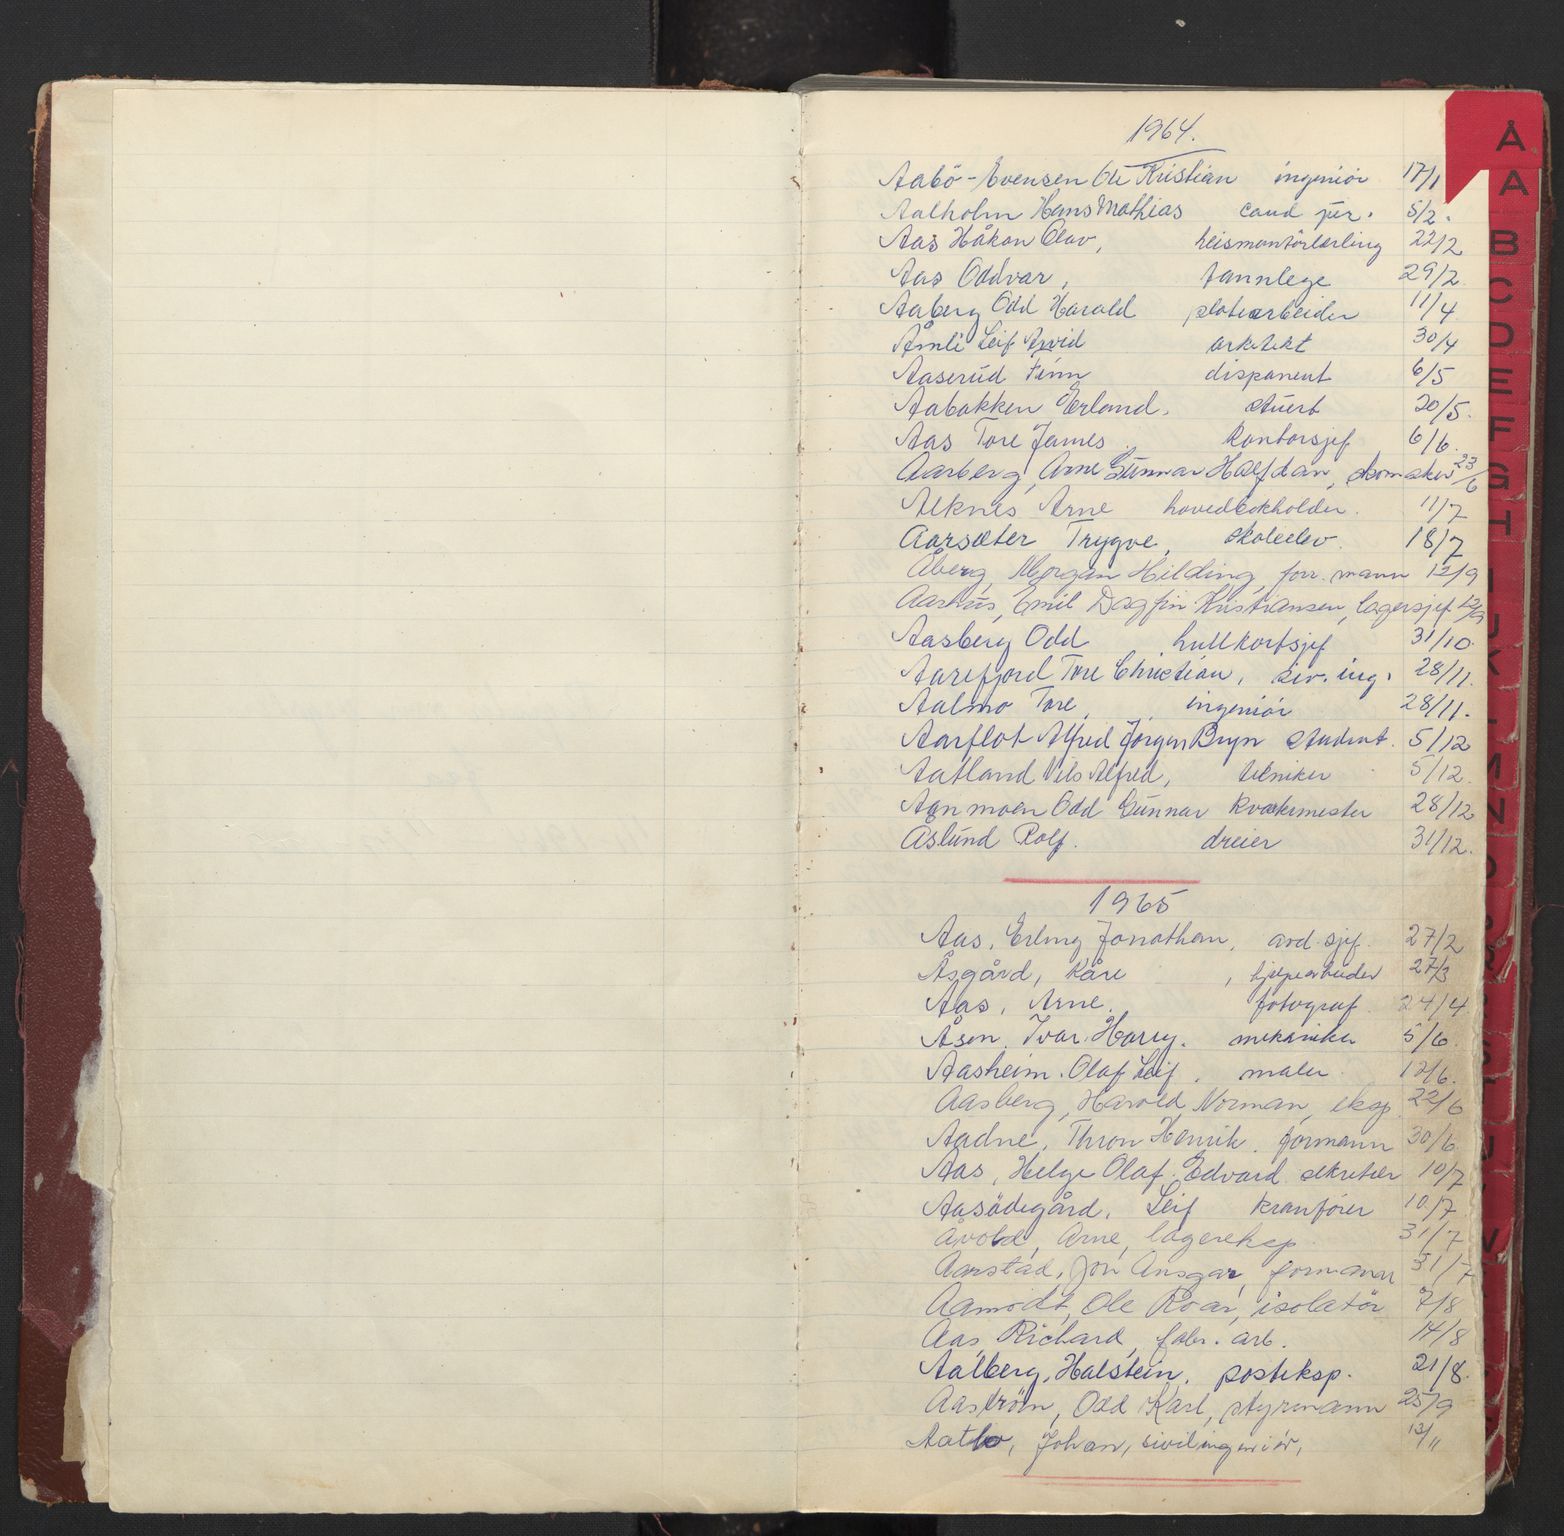 1964.
Aabö-Evensen Ole Kristian ingeniör 17/1
Aalholm Hans Mathias cand jur. 5/2.
Aas Håkon Olav, heismontörlærling 22/2
Aas Oddvar, tannlege 29/2
Aaberg Odd Harald platearbeider 11/4
Åmli Leif Arvid arkitekt 30/4
Aaserud Finn disponent 6/5
Aabakken Erland. stuert 20/5.
Aas Tore James kontorsjef 6/6.
Aarberg, Arne Gunnar Halfdan, skomaker 23/6
Alknes Arne hovedbokholder. 11/7
Aarsæter Trygve, skoleelev. 18/7
Åberg, Morgan Hilding, forr. mann 12/9
Aarhus, Emil Dagfin Kristiansen, lagersjef 12/9
Aasberg Odd hullkortsjef 31/10
Aarefjord Tore Christian, siv. ing. 28/11.
Aalmo Tore, ingeniör 28/11.
Aarflot Alfred Jörgen Bryn student. 5/12
Aatland Nils Alfred, tekniker 5/12.
Aanmoen Odd Gunnar kvartermester 28/12
Åslund Rolf. dreier 31/12.
1965
Aas, Erling Jonathan, avd. sjef. 27/2
Åsgård, Kåre, hjelpearbeider 27/3
Aas, Arne. fotograf 24/4
Åsen, Ivar Harry. mekaniker 5/6.
Aasheim. Olaf Leif, maler 12/6.
Aasberg, Harald Norman, eksp. 22/6
Aadne, Thron Henrik. formann 30/6
Aas, Helge Olaf Edvard sekretær 10/7
Aasödegård, Leif kranförer 10/7
Åvold, Arne, lagereksp. 31/7
Aarstad, Jon Ansgar, formann 31/7
Aamodt, Ole Roar, isolatör 7/8
Aas, Richard, fabr. arb. 14/8
Aalberg, Halstein, posteksp. 21/8.
Aaström, Odd Karl, styrmann 25/9
Johan, sivilingeniör, 13/11
Å
A
B
C
D
E
F
G
H
I
J
K
L
M
N
O